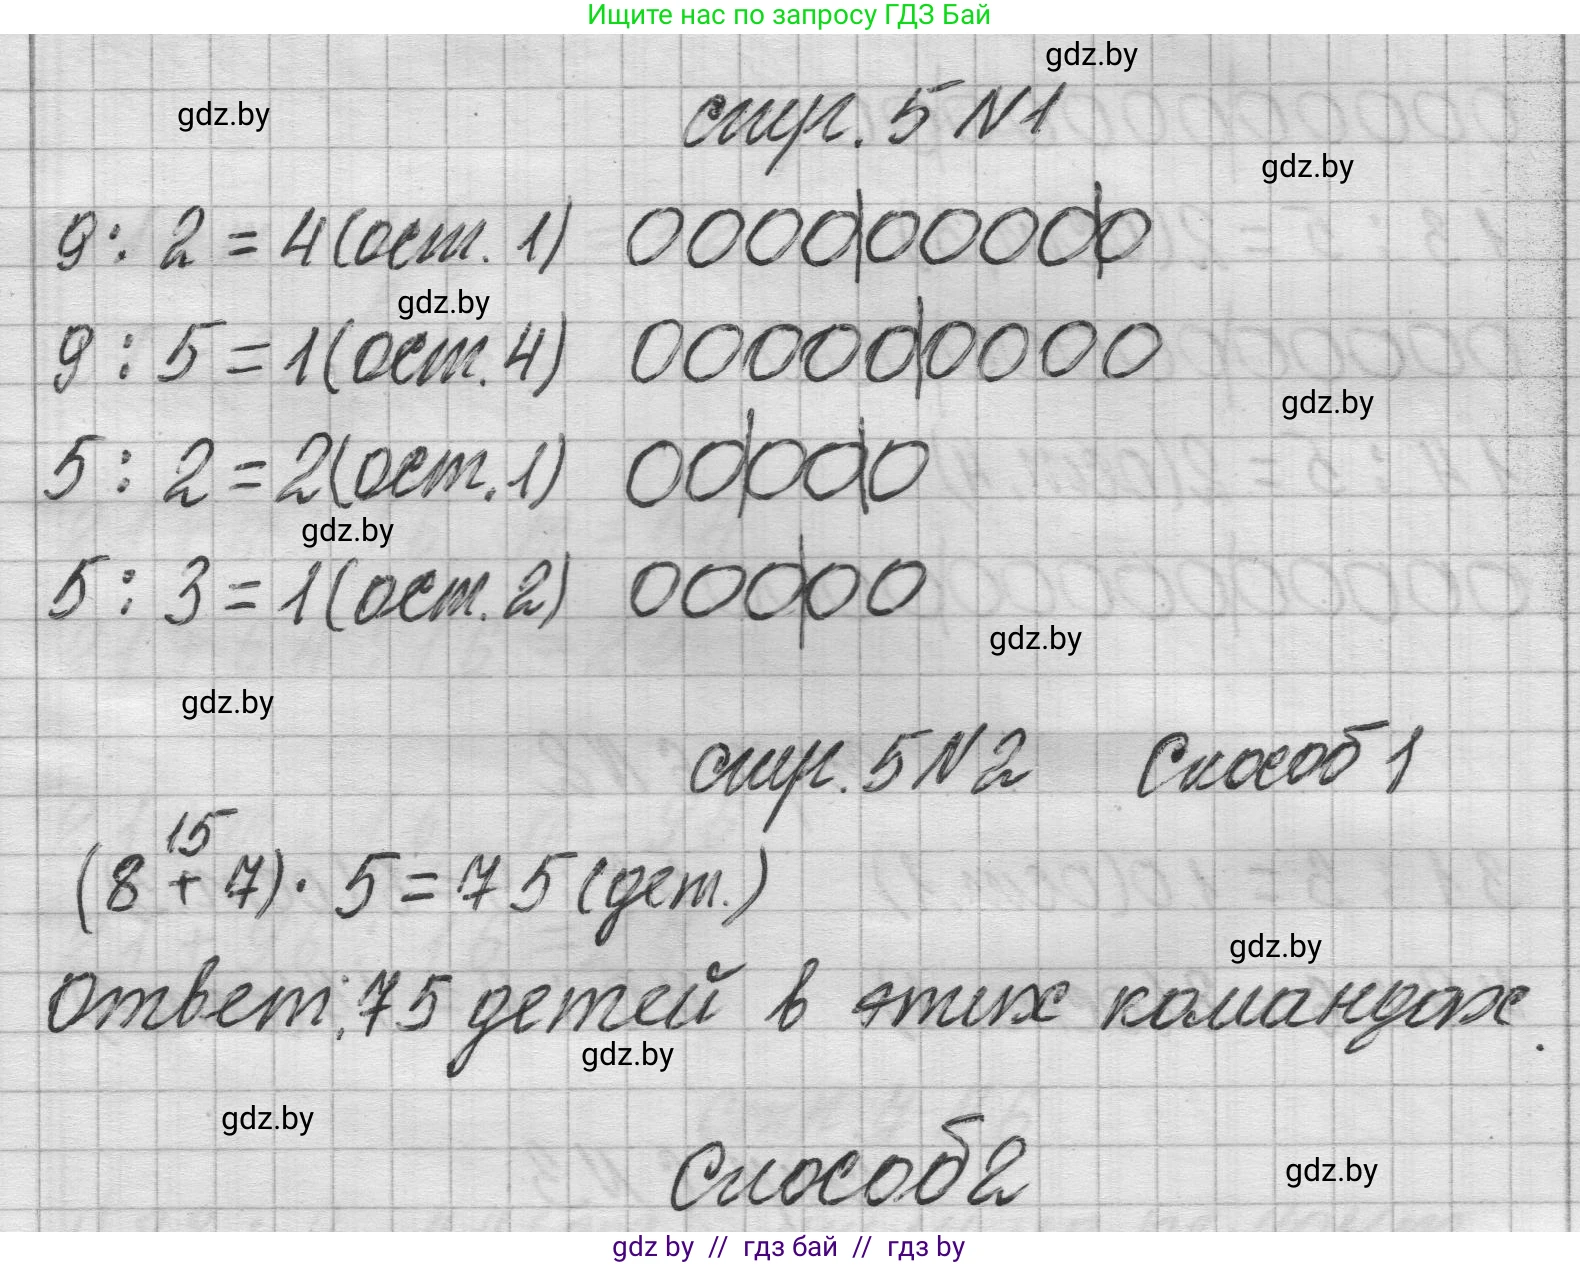 Ищите нас по запросу ГДЗ Бай
gdz.by
gdz.by
стр. 5 N 1
gdz.by
9 : 2 = 4 (ост. 1) 0000|0000|0
gdz.by
9 : 5 = 1 (ост. 4) 00000|0000
gdz.by
5 : 2 = 2 (ост. 1) 00|00|0
gdz.by
5 : 3 = 1 (ост. 2) 000|00
gdz.by
gdz.by
стр. 5 N 2 Способ 1
15
(8 + 7) · 5 = 75 (дет.)
gdz.by
Ответ: 75 детей в этих командах.
gdz.by
gdz.by
Способ 2
gdz.by
gdz by // гдз бай // гдз by